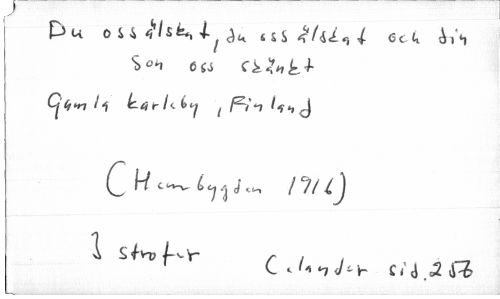 Du oss älskat, du oss älskat och din
Son oss skänkt
Gamla Karleby, Finland
(Hembygden 1916)
3 strofer
Celander sid. 256